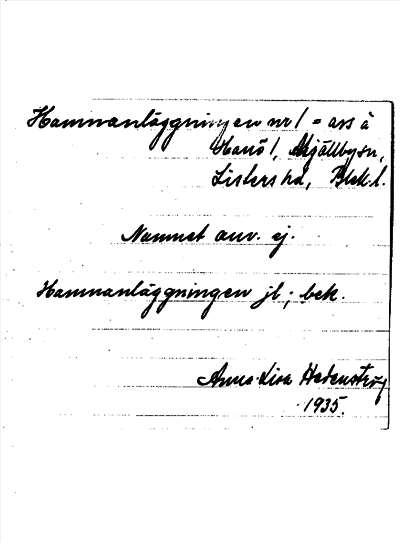 Hamnanläggningen nr 1 = ass å
Hanö 1, Mjällbysn,
Listers hd, Blek. l.
Namnet anv. ej.
Hamnanläggningen jl; bek.
Anna-Lisa Hedenstierna
1935.